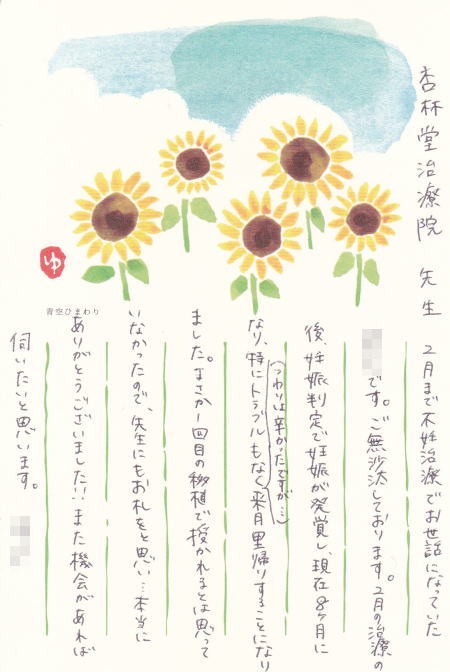 杏林堂治療院 先生
2月まで不妊治療でお世話になっていた
です。ご無沙汰しております。2月の治療の
後、妊娠判定で妊娠が発覚し、現在8ヶ月に
(つわりは辛かったですが…)
なり、特にトラブルもなく来月里帰りすることになり
ました。まさか一回目の移植で授かれるとは思って
いなかったので、先生にもお礼をと思い…本当に
ありがとうございました!!また機会があれば
伺いたいと思います。
青空ひまわり
ゆ